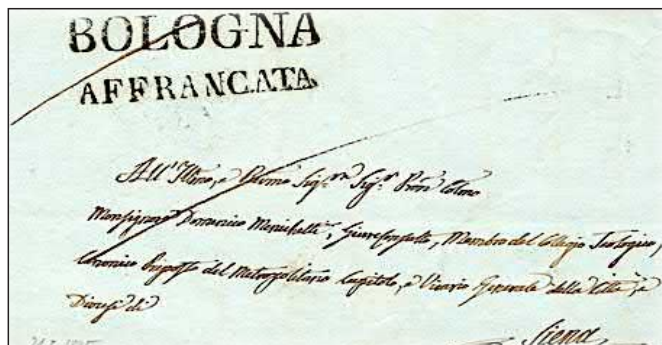 BOLOGNA
AFFRANCATA
All'Illmo, e Revmo Sigr. Sigr. Pron Colmo
Monsignore Domenico Menichelli, Giureconsulto, Membro del Collegio Teologico,
Canonico Proposto del Metropolitano Capitolo, e Vicario Generale della Città, e
Diocesi di
Siena